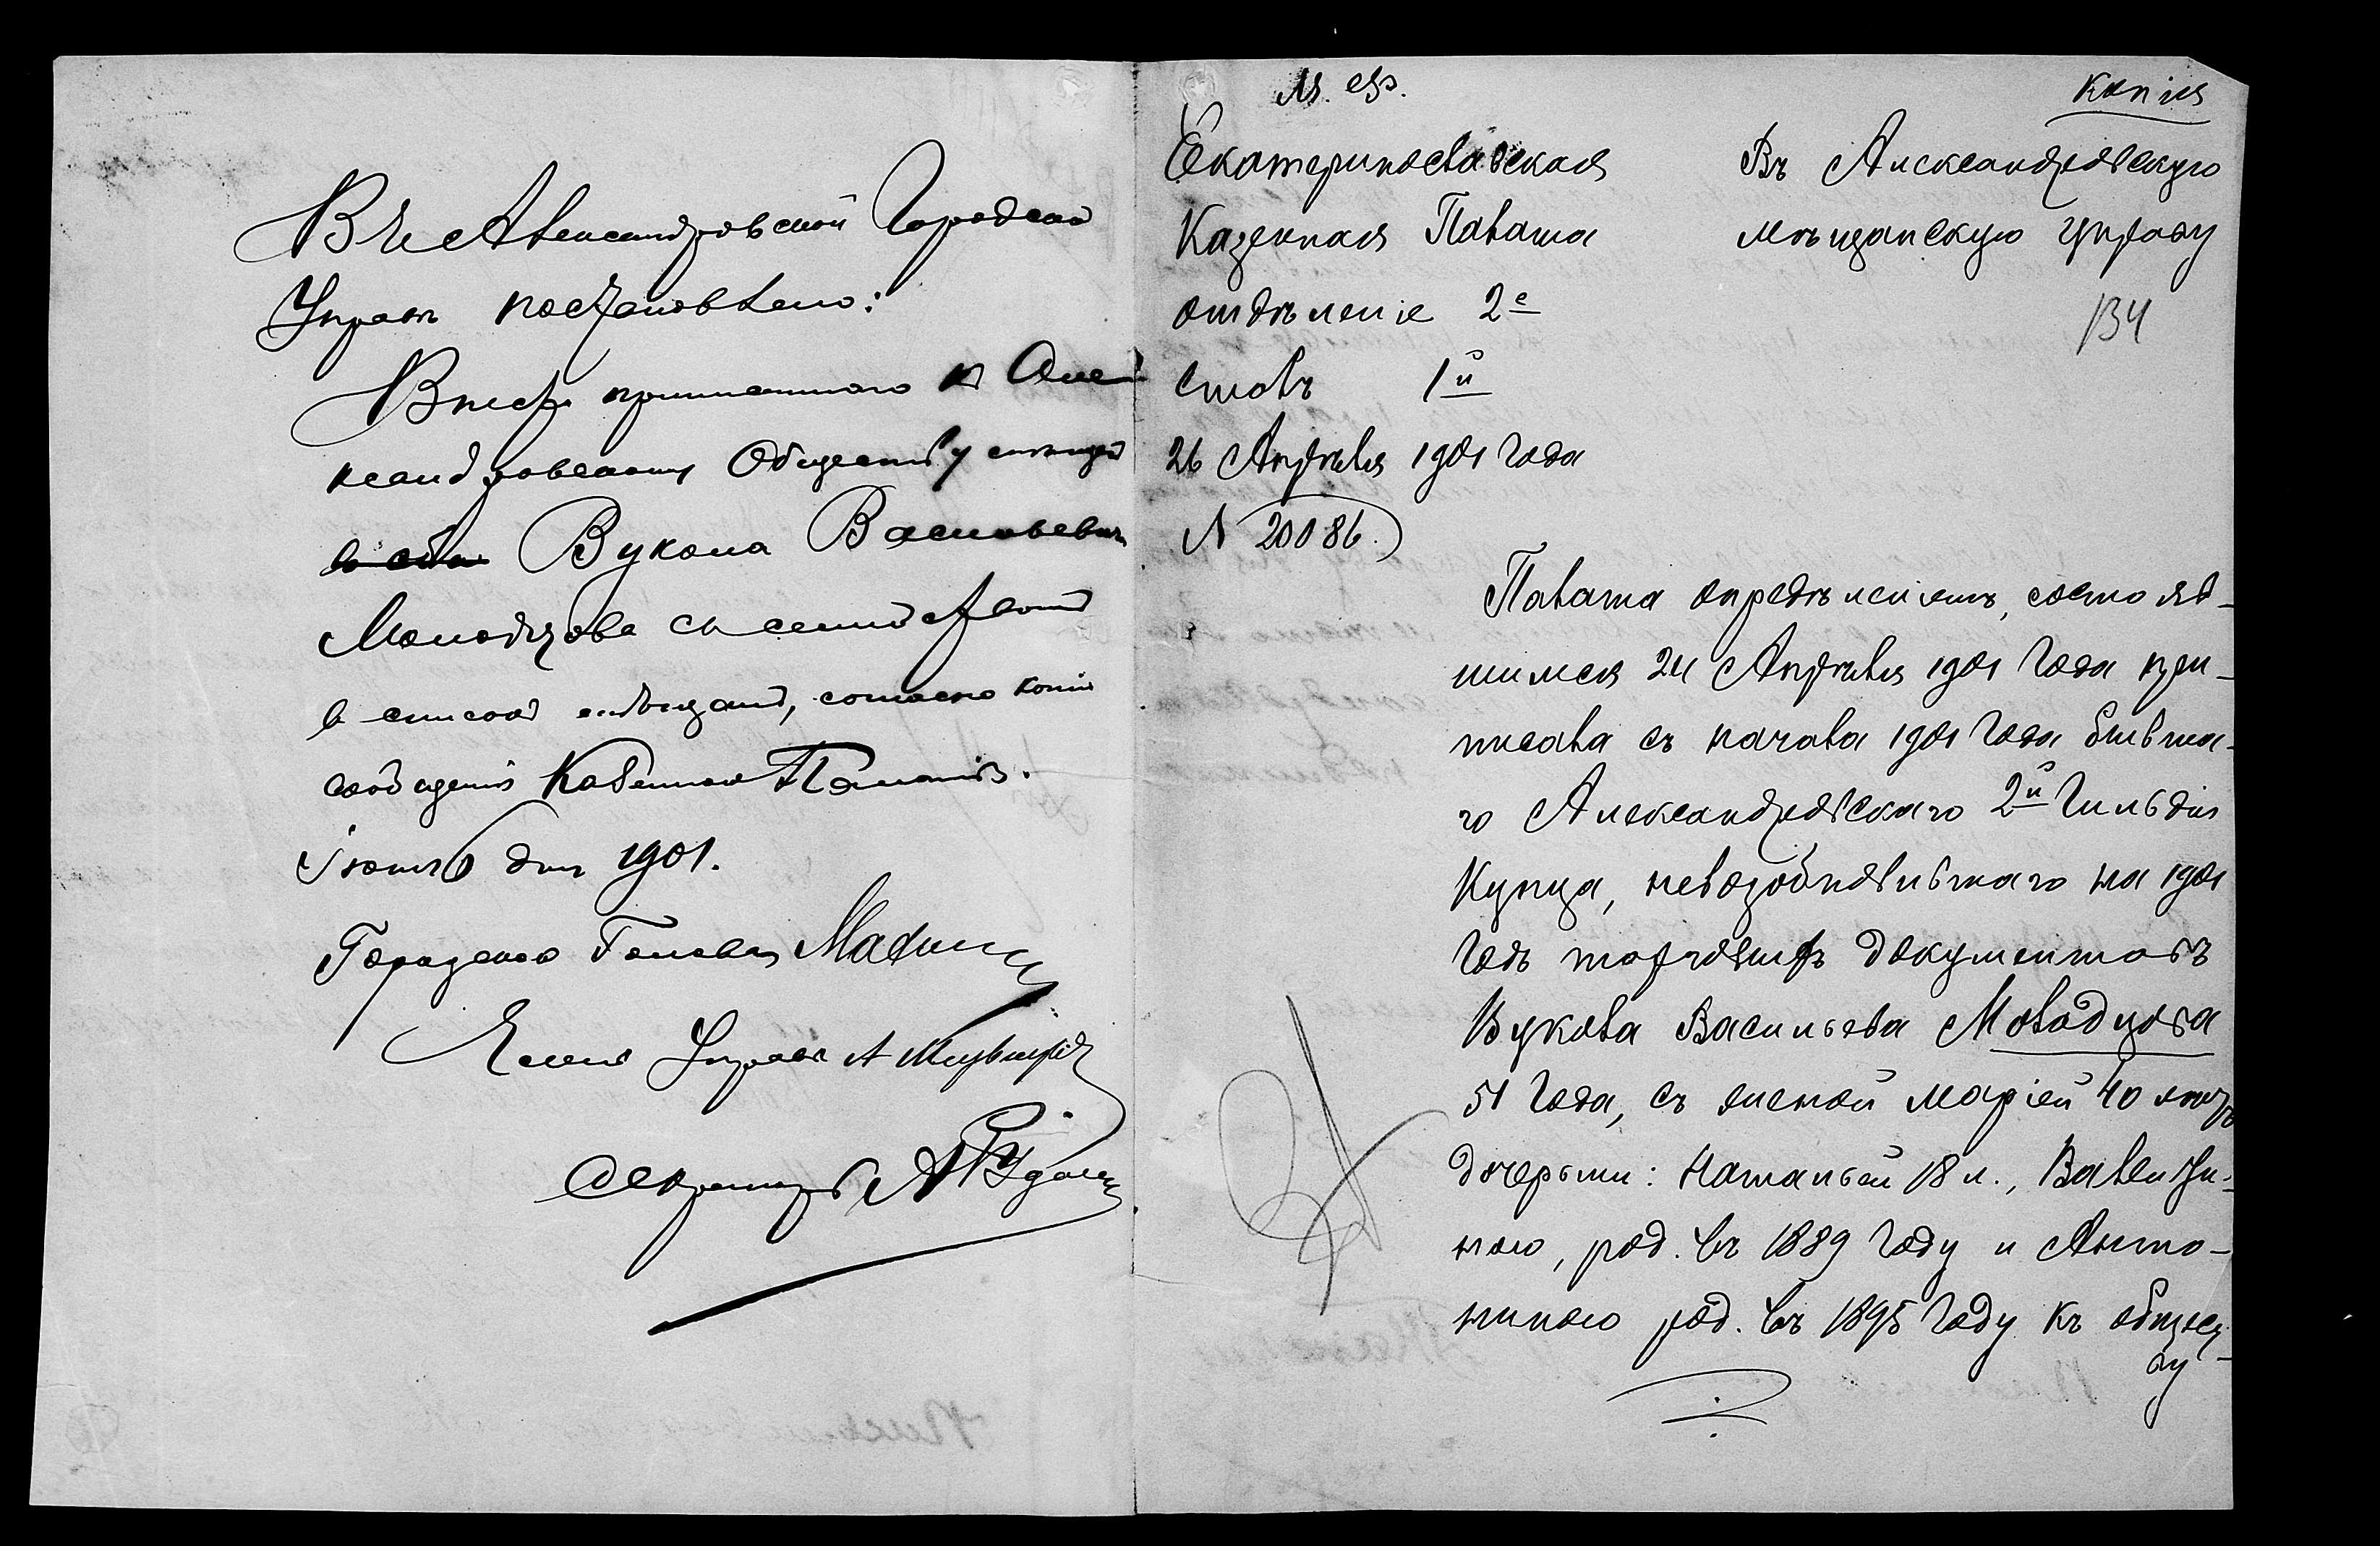 Въ Александровской Городской
Управѣ постановлено:
Внести приписаннаго къ Але
ксандровскому Обществу мѣщанъ
Вукола Васильевича
Молодцова съ семействомъ
в списокъ мѣщанъ, согласно копіи
сообщенія Казенной Палаты.
Іюня 6 дня 1901.
Городской Голова
Членъ Управы А
Секретарь А
М. Ф.
Копія
Екатеринославская
Казенная Палата
отдѣленіе 2е
столъ 1й
26 Апрѣля 1901 года
№ 20086.
Въ Александровскую
мѣщанскую управу
134
Палата опредѣленіемъ, состояв-
шимся 24 Апрѣля 1901 года при-
писала съ начала 1901 года бывша-
го Александровскаго 2й гильдіи
купца, невозобновившаго на 1901
годъ торговыхъ документовъ
Вукола Васильева Молодцова
51 года, съ женой Маріей 40 лѣтъ
дочерьми: Натальей 18 л., Валенти-
ною, род. въ 1889 году и Анто-
ниною род. въ 1895 году къ общест-
ву